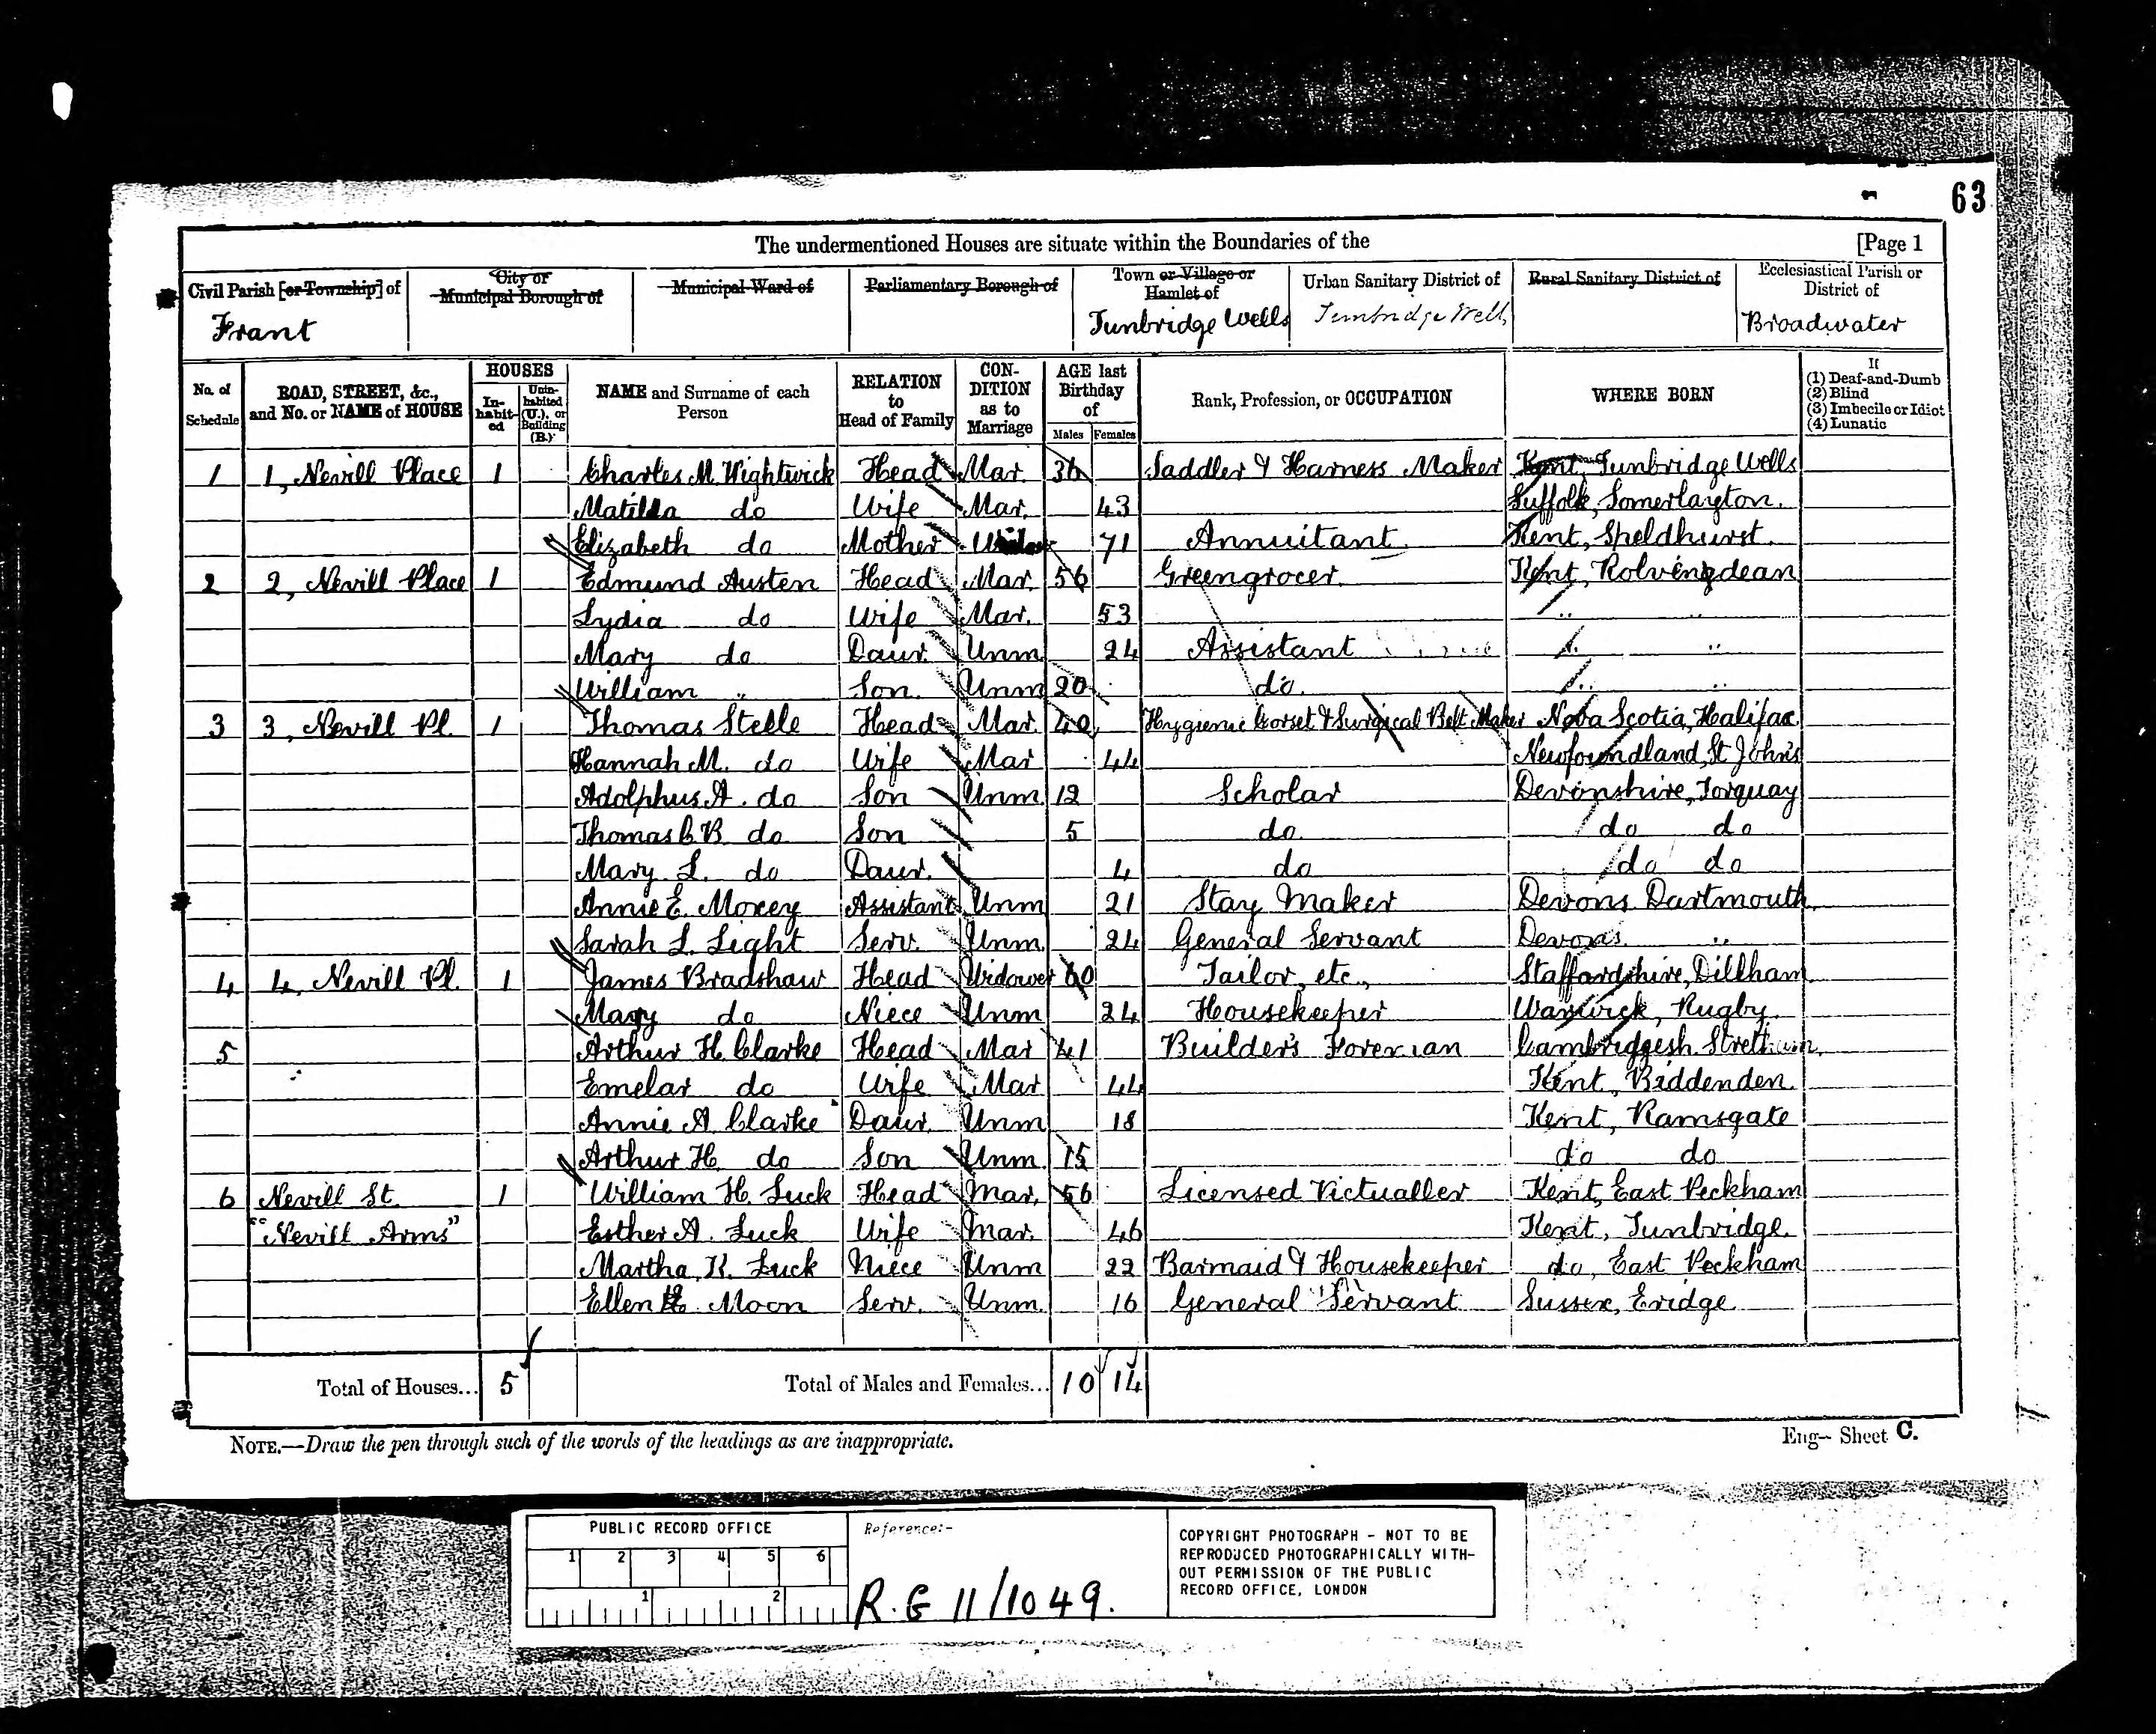 63
The undermentioned Houses are situate within the Boundaries of the [Page 1
Civil Parish [or Township] of City or Municipal Borough of Municipal Ward of Parliamentary Borough of Town or Village or Hamlet of Urban Sanitary District of Rural Sanitary District of Ecclesiastical Parish or District of
Frant Tunbridge Wells Tunbridge Wells Broadwater
No. of Schedule ROAD, STREET, &c., and No. or NAME of HOUSE HOUSES In-habit-ed Unin-habited (U.), or Building (B.) NAME and Surname of each Person RELATION to Head of Family CON-DITION as to Marriage AGE last Birthday of Males Females Rank, Profession, or OCCUPATION WHERE BORN If (1) Deaf-and-Dumb (2) Blind (3) Imbecile or Idiot (4) Lunatic
1 1, Nevill Place 1 Charles M. Wightwick Head Mar. 36 Saddler & Harness Maker Kent, Tunbridge Wells
Matilda do Wife Mar. 43 Suffolk, Somerlayton.
Elizabeth do Mother 71 Annuitant Kent, Speldhurst.
2 2, Nevill Place 1 Edmund Austen Head Mar. 56 Greengrocer Kent, Rolvengdean
Lydia do Wife Mar. 53 " "
Mary do Daur. Unm 24 Assistant " "
William " Son. Unm 20 do. " "
3 3, Nevill Pl. 1 Thomas Stelle Head Mar. 40 Hygienic Corset & Surgical Belt Maker Nova Scotia, Halifax
Hannah M. do Wife Mar 44 Newfoundland, St John's
Adolphus A. do Son Unm. 12 Scholar Devonshire, Torquay
Thomas C B do Son 5 do. do do
Mary L. do Daur. 4 do do do
Annie E. Moxey Assistant Unm 21 Stay Maker Devons Dartmouth
Sarah L. Light Serv. Unm. 24 General Servant Devons. "
4 4, Nevill Pl. 1 James Bradshaw Head Widower 60 Tailor, etc., Staffordshire, Dillham
Mary do Niece Unm 24 Housekeeper Warwick, Rugby.
5 Arthur H. Clarke Head Mar 41 Builder's Foreman Cambridgesh. Stretham.
Emelar do Wife Mar 44 Kent, Biddenden.
Annie A. Clarke Daur. Unm 18 Kent, Ramsgate
Arthur H. do Son Unm. 15 do do
6 Nevill St. 1 William H. Luck Head Mar. 56 Licensed Victualler Kent, East Peckham
"Nevill Arms" Esther A. Luck Wife Mar. 46 Kent, Tunbridge.
Martha K. Luck Niece Unm 22 Barmaid & Housekeeper do, East Peckham
Ellen Moon Serv. Unm. 16 General Servant Sussex, Eridge
Total of Houses... 5 Total of Males and Females... 10 14
NOTE.—Draw the pen through such of the words of the headings as are inappropriate. Eng— Sheet C.
PUBLIC RECORD OFFICE
1 2 3 4 5 6
1 2
Reference:-
R.G 11/1049.
COPYRIGHT PHOTOGRAPH - NOT TO BE
REPRODUCED PHOTOGRAPHICALLY WITH-
OUT PERMISSION OF THE PUBLIC
RECORD OFFICE, LONDON